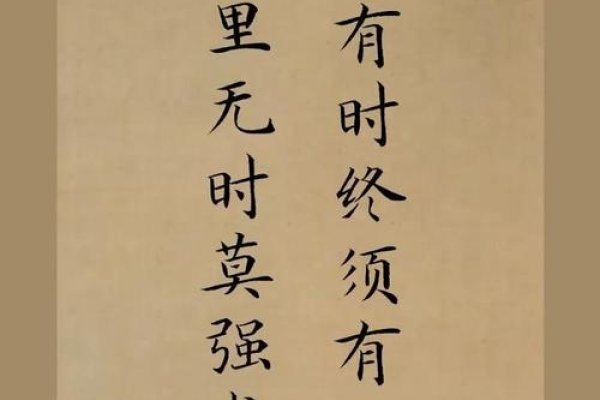 有时终须有
里无时莫强